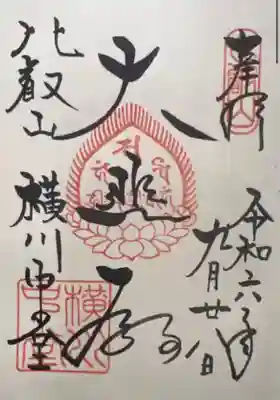 奉拝
令和六年
九月廿八日
大悲殿
比叡山
横川中堂
横川
中堂